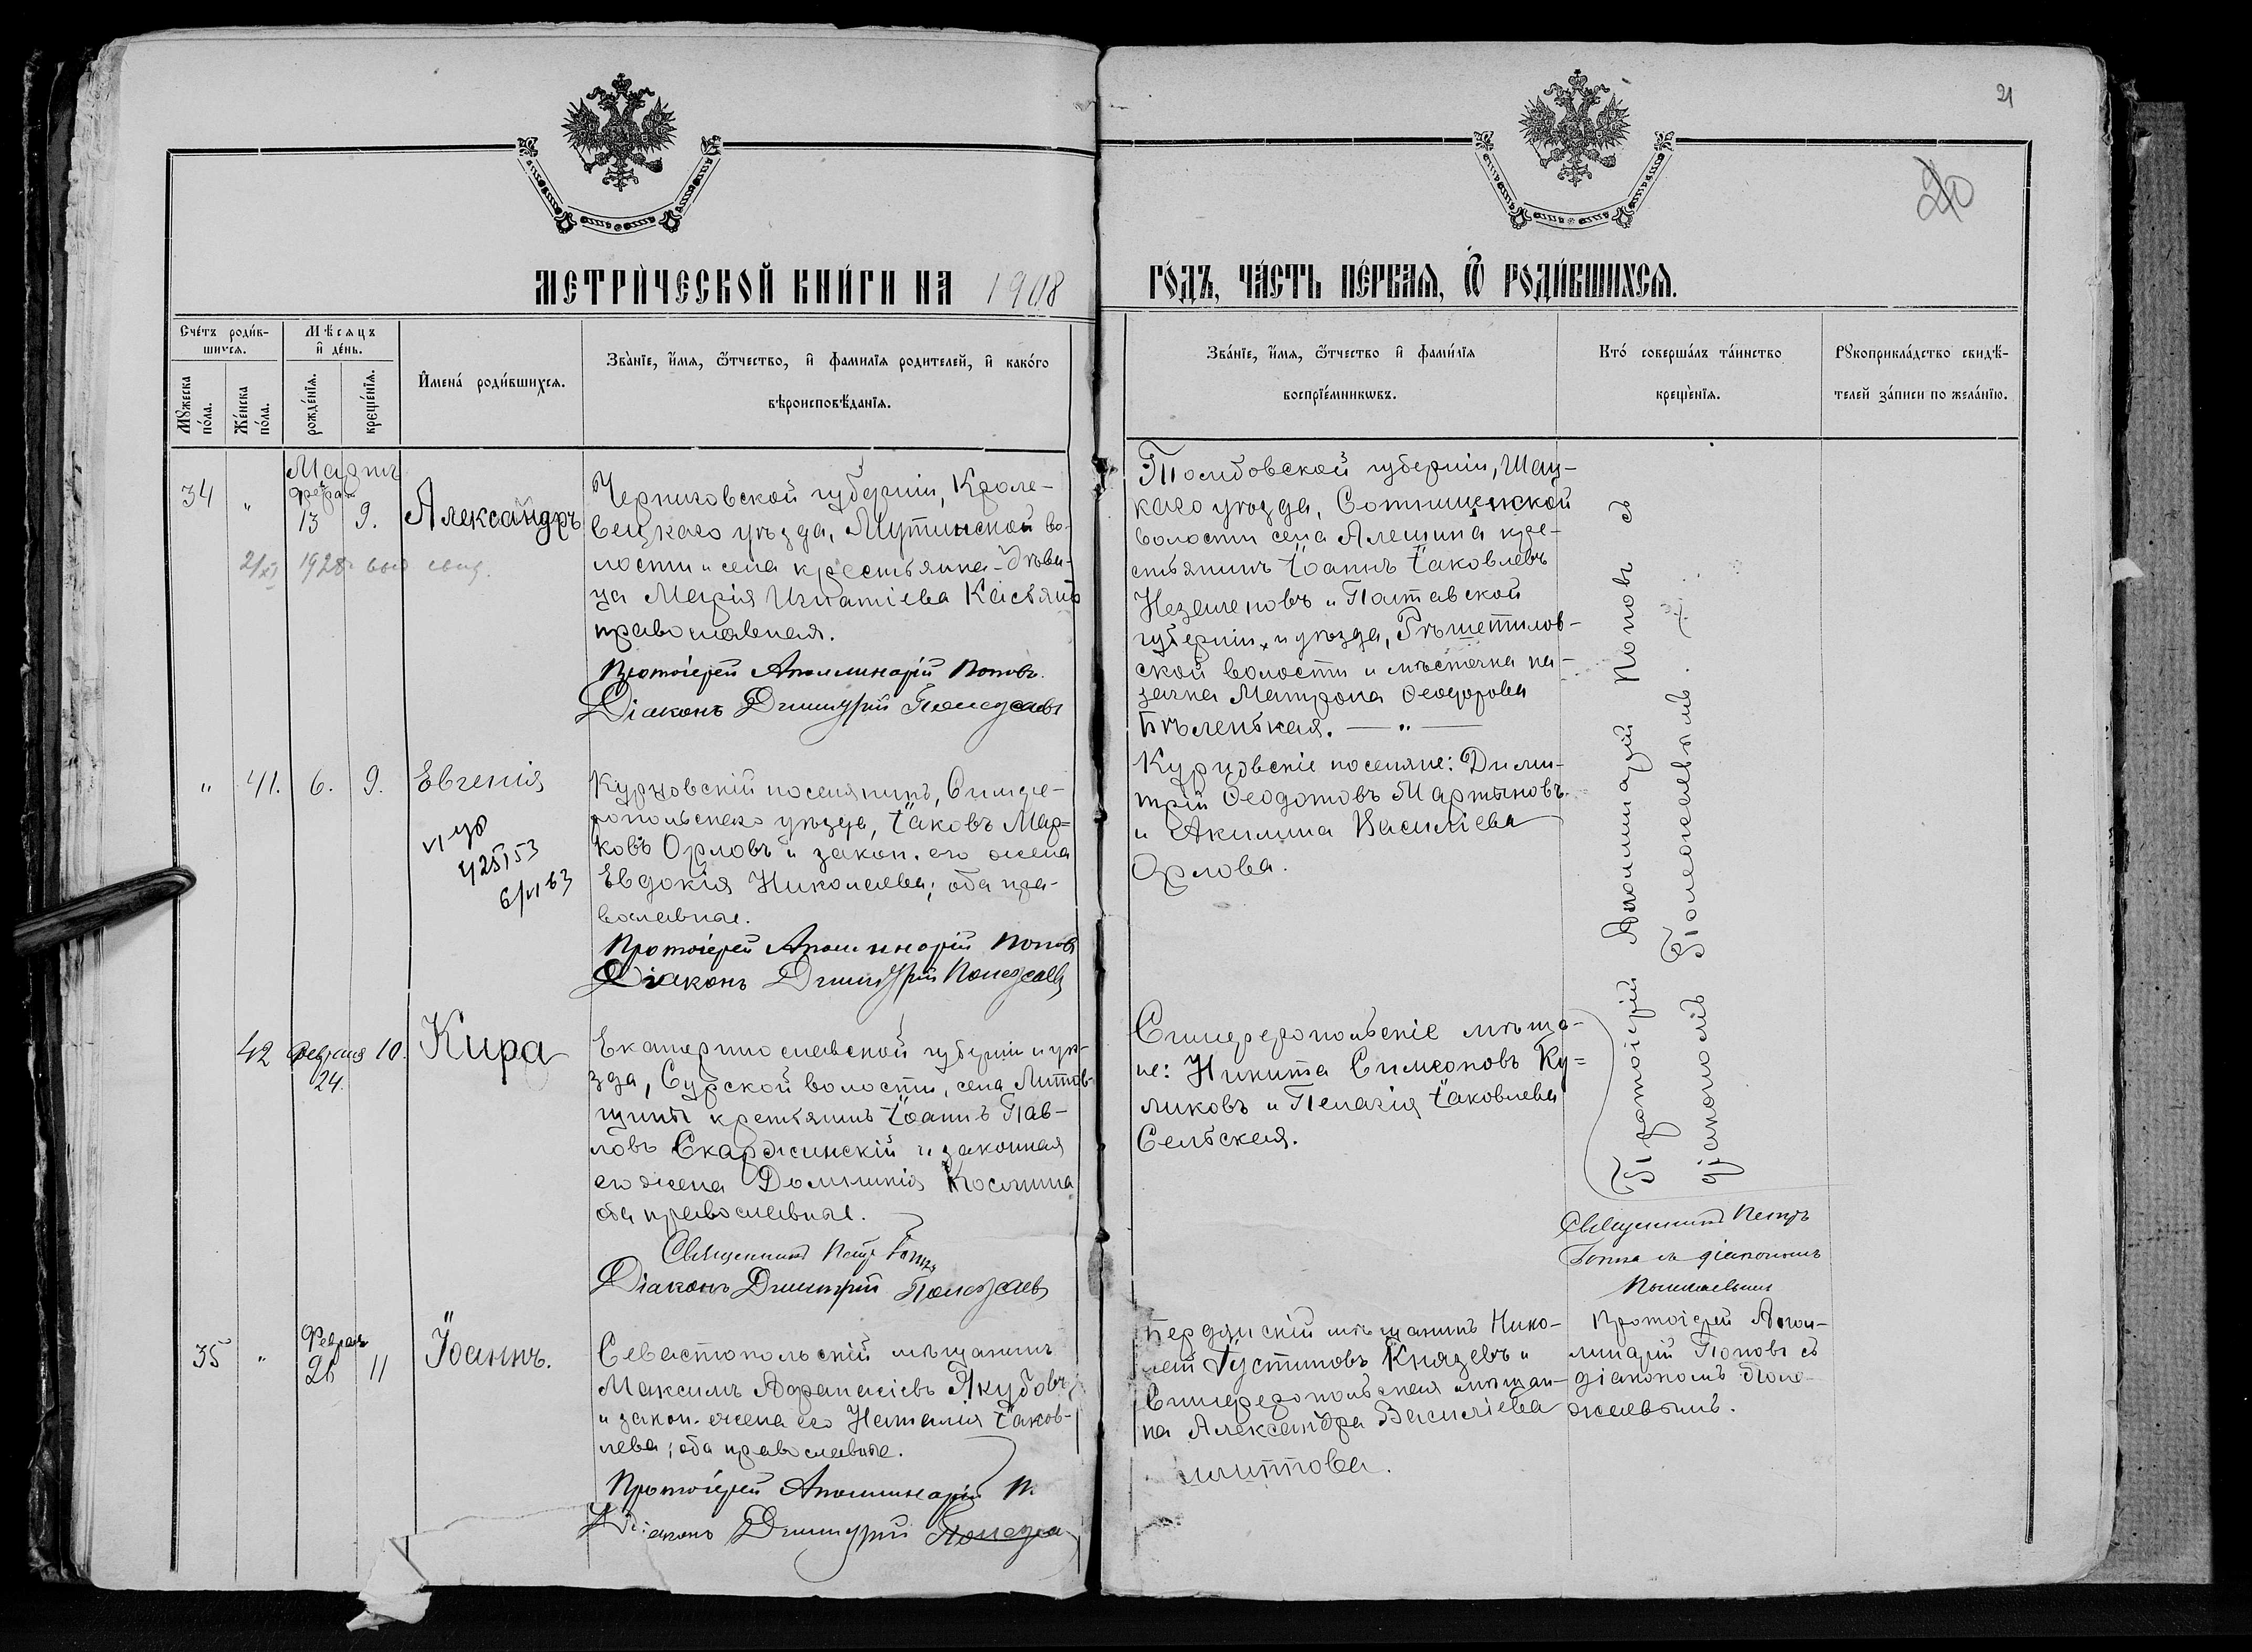 21
20
МЕТРИ́ЧЕСКОЙ КНИ́ГИ НА 1908
ГО́ДЪ, ЧА́СТЬ ПЕ́РВАЯ, Ѿ РОДИ́ВШИХСЯ.
Сче́тъ роди́в-
шихся.
Му́жеска по́ла.
Же́нска по́ла.
Мѣ́сяцъ
и҆ де́нь.
рожде́нїѧ.
креще́нїѧ.
И҆мена́ роди́вшихсѧ.
Зва́нїе, и҆́мя, ѻ҆́тчество, и҆ фамилїѧ родителей, и҆ како́го
вѣроисповѣ́данїѧ.
Зва́нїе, и҆́мя, ѻ҆́тчество и҆ фами́лїѧ
воспрїе́мникѡвъ.
Кто́ соверша́лъ та́инство
креще́нїѧ.
Рꙋкоприкла́дство свидѣ́-
телей за́писи по жела́нїю.
34
"
Мартъ
февра
13
9.
Александръ
2/XI 1928 выд свид.
Черниговской губерніи, Кроле-
вецкаго уѣзда, Мутинской во-
лости и села крестьянка-дѣви-
ца Марія Игнатіева Касьянъ
православная.
Протоіерей Аполлинарій Поповъ.
Діаконъ Димитрій Положаевъ
Тамбовской губерніи, Шац-
каго уѣзда, Сотницынской
волости села Алешина кре-
стьянинъ Іоаннъ Іаковлевъ
и Полтавской
губерніи и уѣзда, Рѣшетилов-
ской волости и мѣстечка ка-
зачка Матрона Ѳеодорова
Бѣленькая. — " —
Протоіерей Аполлинарій Поповъ съ
діакономъ Положаевымъ.
"
41.
6.
9.
Евгенія
425153
6/VI 63
Курцовскій поселянинъ, Симфе-
ропольскаго уѣзда, Іаковъ Мар-
ковъ Орловъ и закон. его жена
Евдокія Николаева; оба пра-
вославные.
Протоіерей Аполлинарій Поповъ
Діаконъ Димитрій Положаевъ
Курцовскіе поселяне: Дими-
трій Ѳеодотовъ Мартыновъ
и Акилина Василіева
Орлова.
42
Февраля
24.
10.
Кира
Екатеринославской губерніи и уѣ-
зда, Сурской волости, села Литов-
щины крестьянинъ Іоаннъ Пав-
ловъ Скаржинскій и законная
его жена Домникія Косьмина
оба православные.
Священникъ Петръ
Діаконъ Димитрій Положаевъ
Симферопольскіе мѣща-
не: Никита Симеоновъ Ку-
ликовъ и Пелагія Іаковлева
Сельская.
Священникъ Петръ
съ діакономъ
Положаевымъ
35
"
Февраля
26
11
Іоаннъ.
Севастопольскій мѣщанинъ
Максимъ Аѳанасіевъ Якубовъ
и закон. жена его Наталія Іаков-
лева; оба православные.
Протоіерей Аполлинарій П.
Діаконъ Димитрій
Бердянскій мѣщанинъ Нико-
лай Іустиновъ Князевъ и
Симферопольская мѣщан-
ка Александра Василіева
Протоіерей Апол-
линарій Поповъ съ
діакономъ Поло-
жаевымъ.